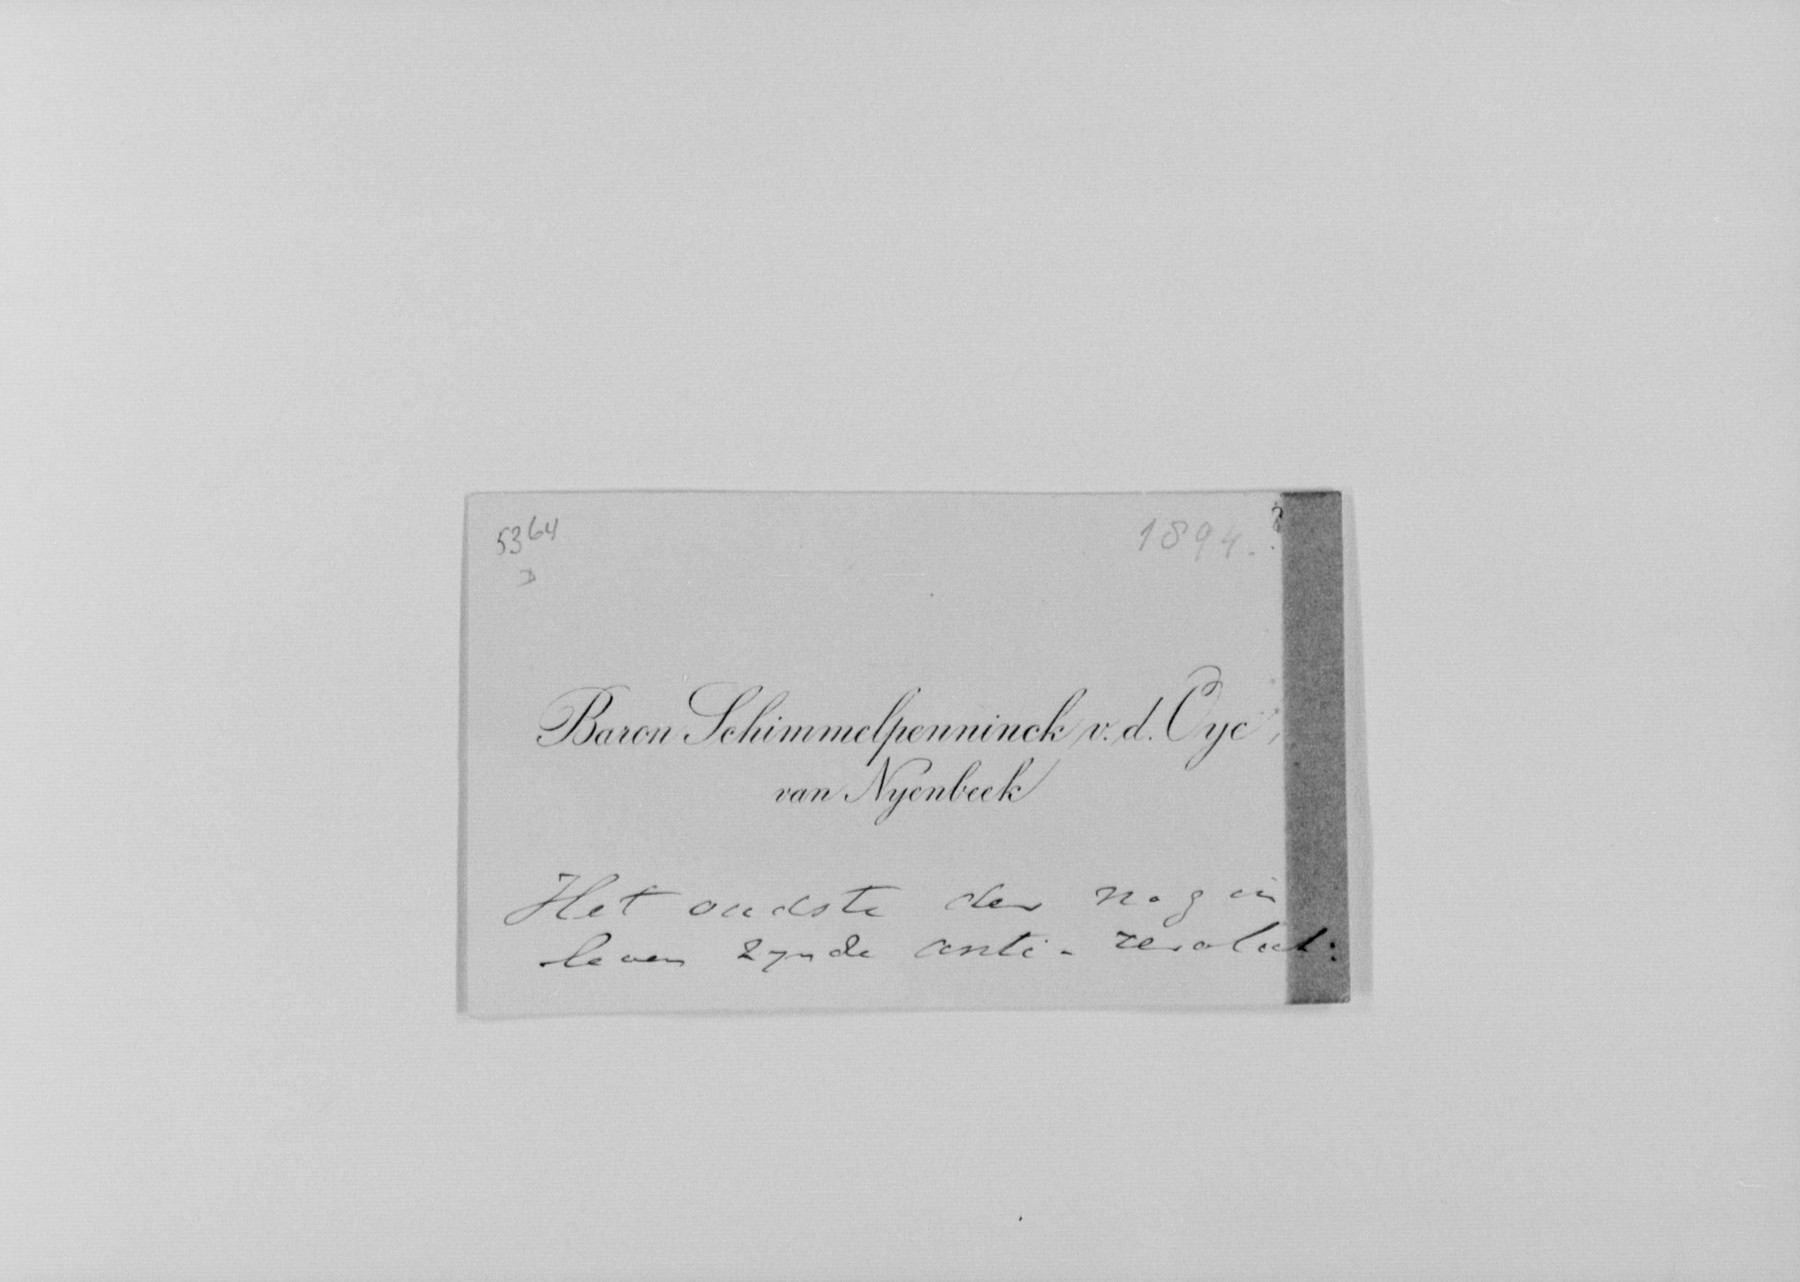 5364
1894.?
Baron Schimmelpenninck v. d. Oye,
van Nyenbeek
Het oudste der nog in
leven zynde anti-revolut: